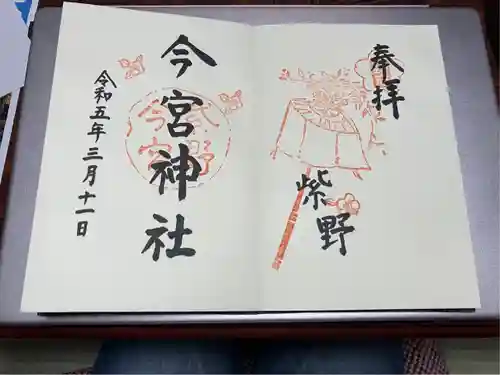 奉拝
紫野
今宮神社
令和五年三月十一日
今宮
紫野